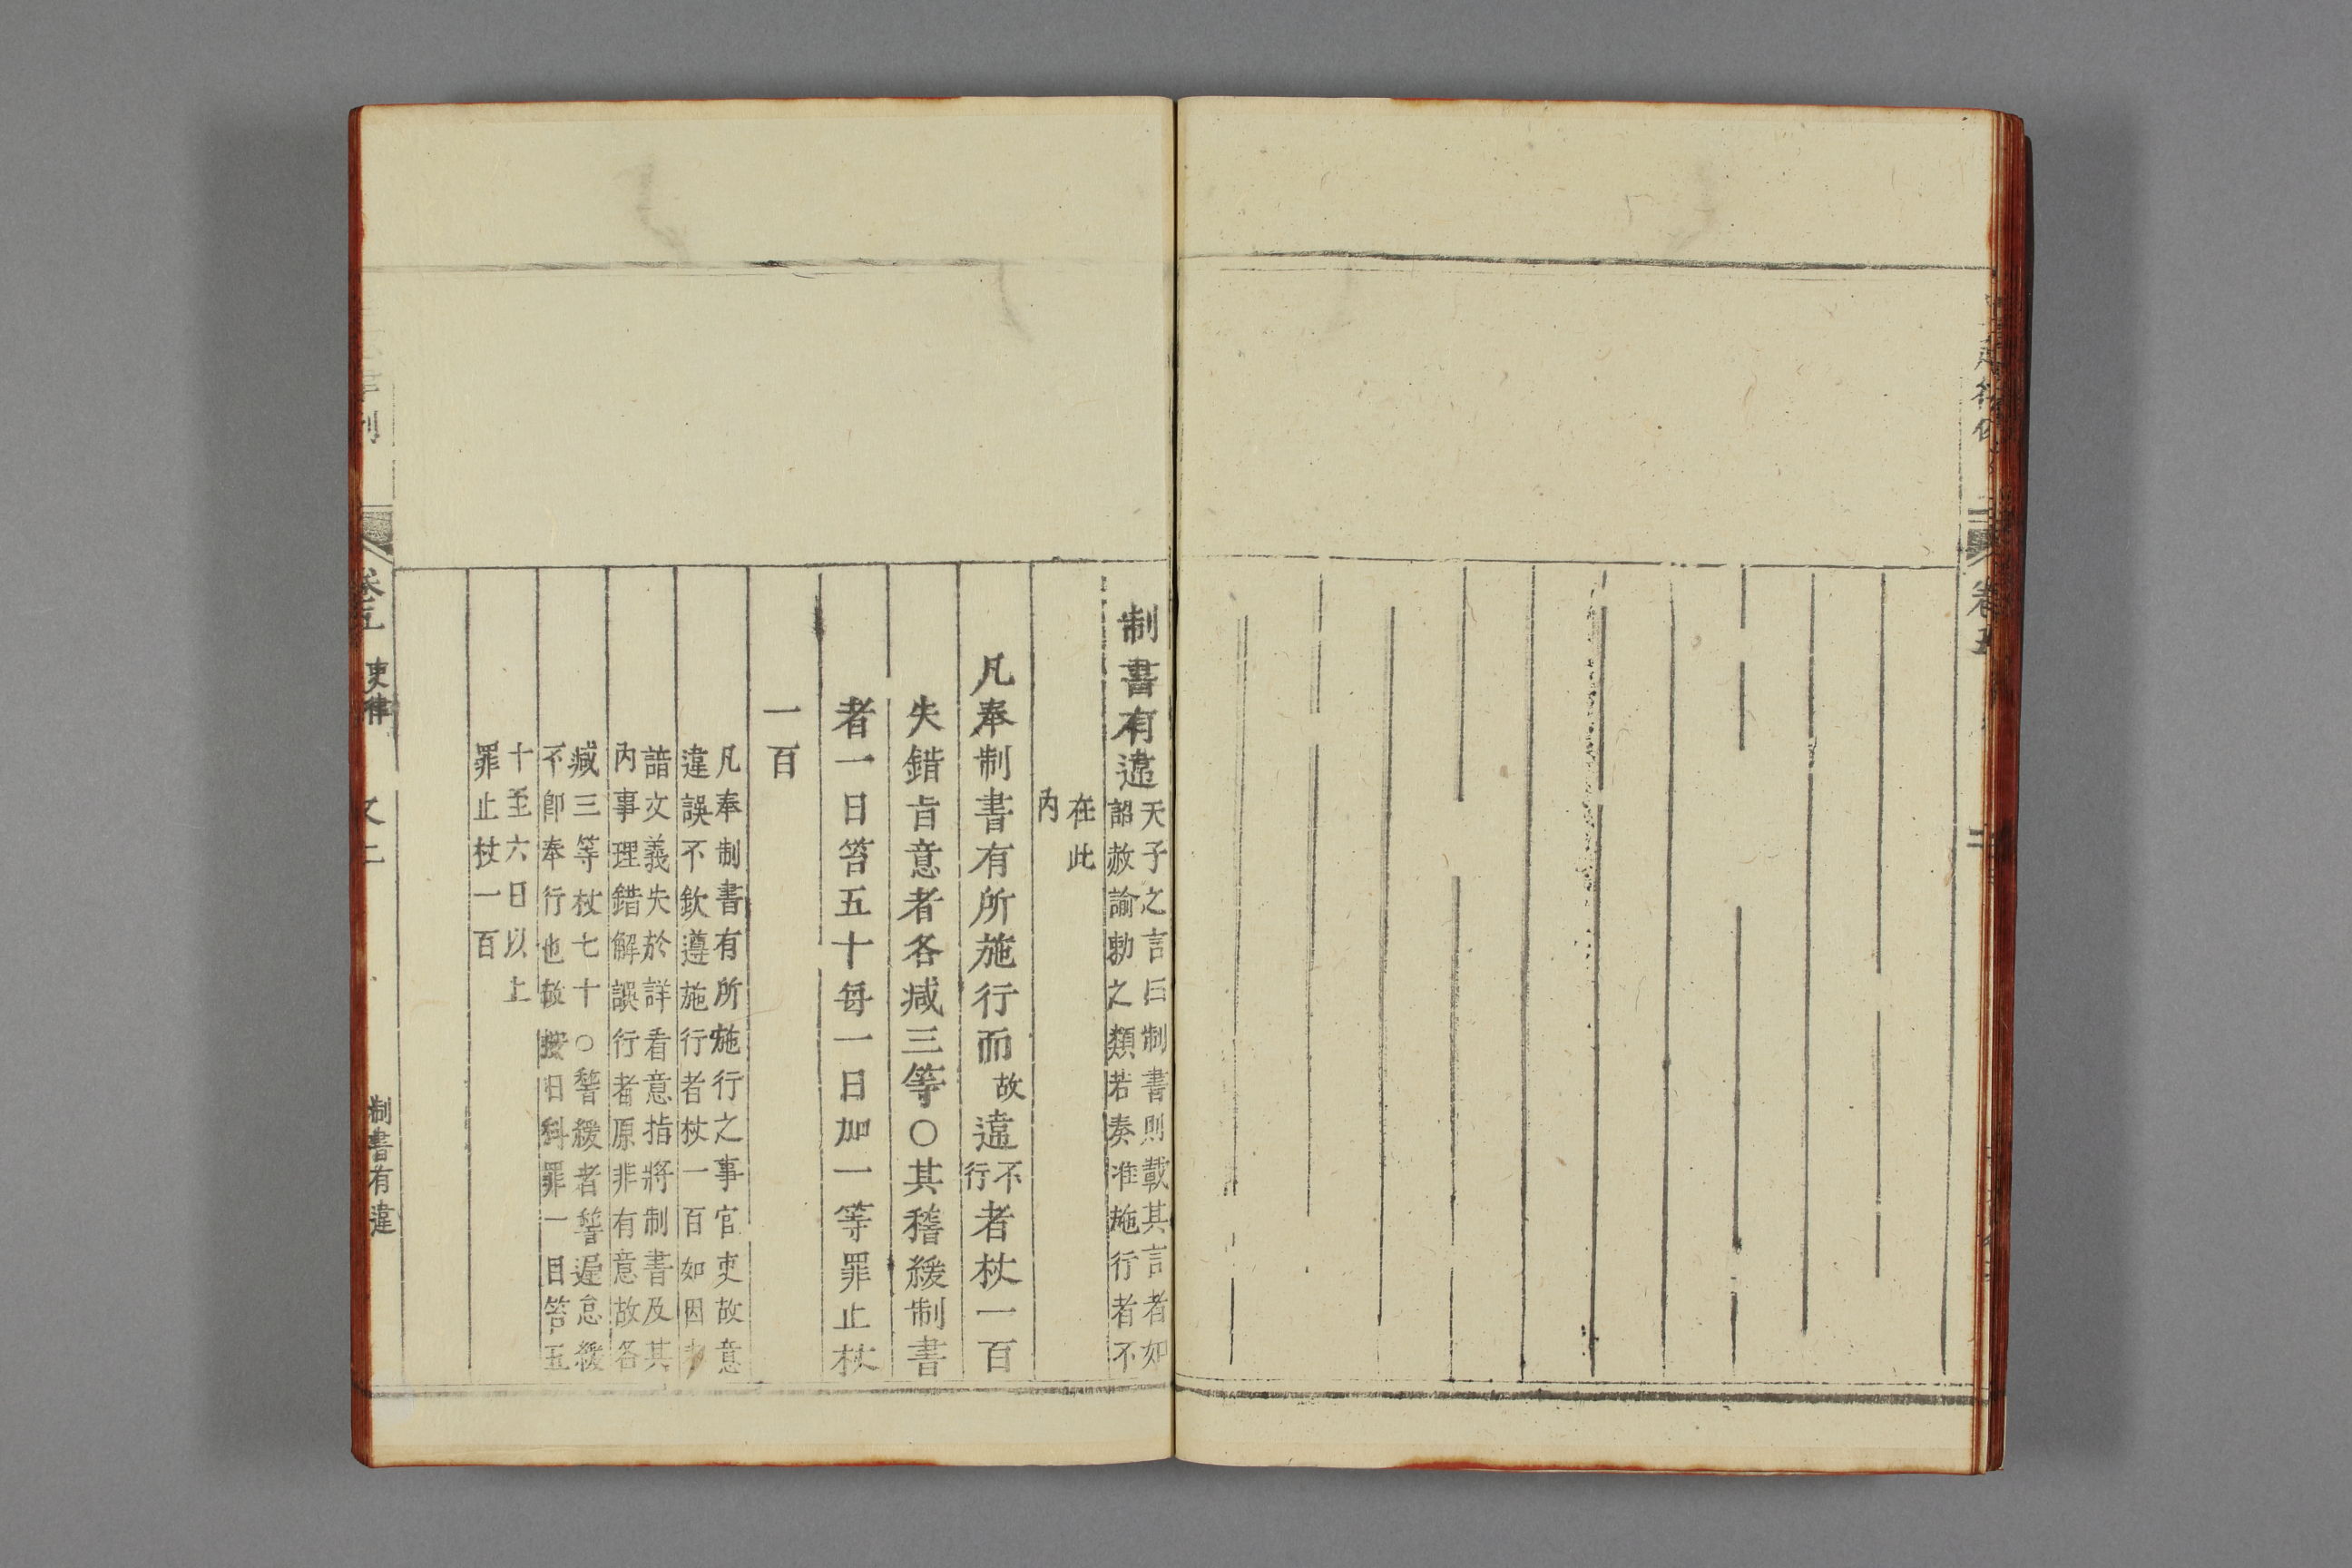 卷五
二
制書有違天子之言曰制書則載其言者如
詔赦諭勅之類若奏准施行者不
在此
内
凡奉制書有所施行而故違不行者杖一百
失錯旨意者各减三等○其稽緩制書
者一日笞五十每一日加一等罪止杖
一百
凡奉制書有所施行之事官吏故意
違誤不欽遵施行者杖一百如因
誥文義失於詳看意指將制書及其
内事理錯解誤行者原非有意故各
减三等杖七十○稽緩者稽遲怠緩
不卽奉行也故按日科罪一日笞五
十至六日以上
罪止杖一百
卷五 吏律 二 制書有違